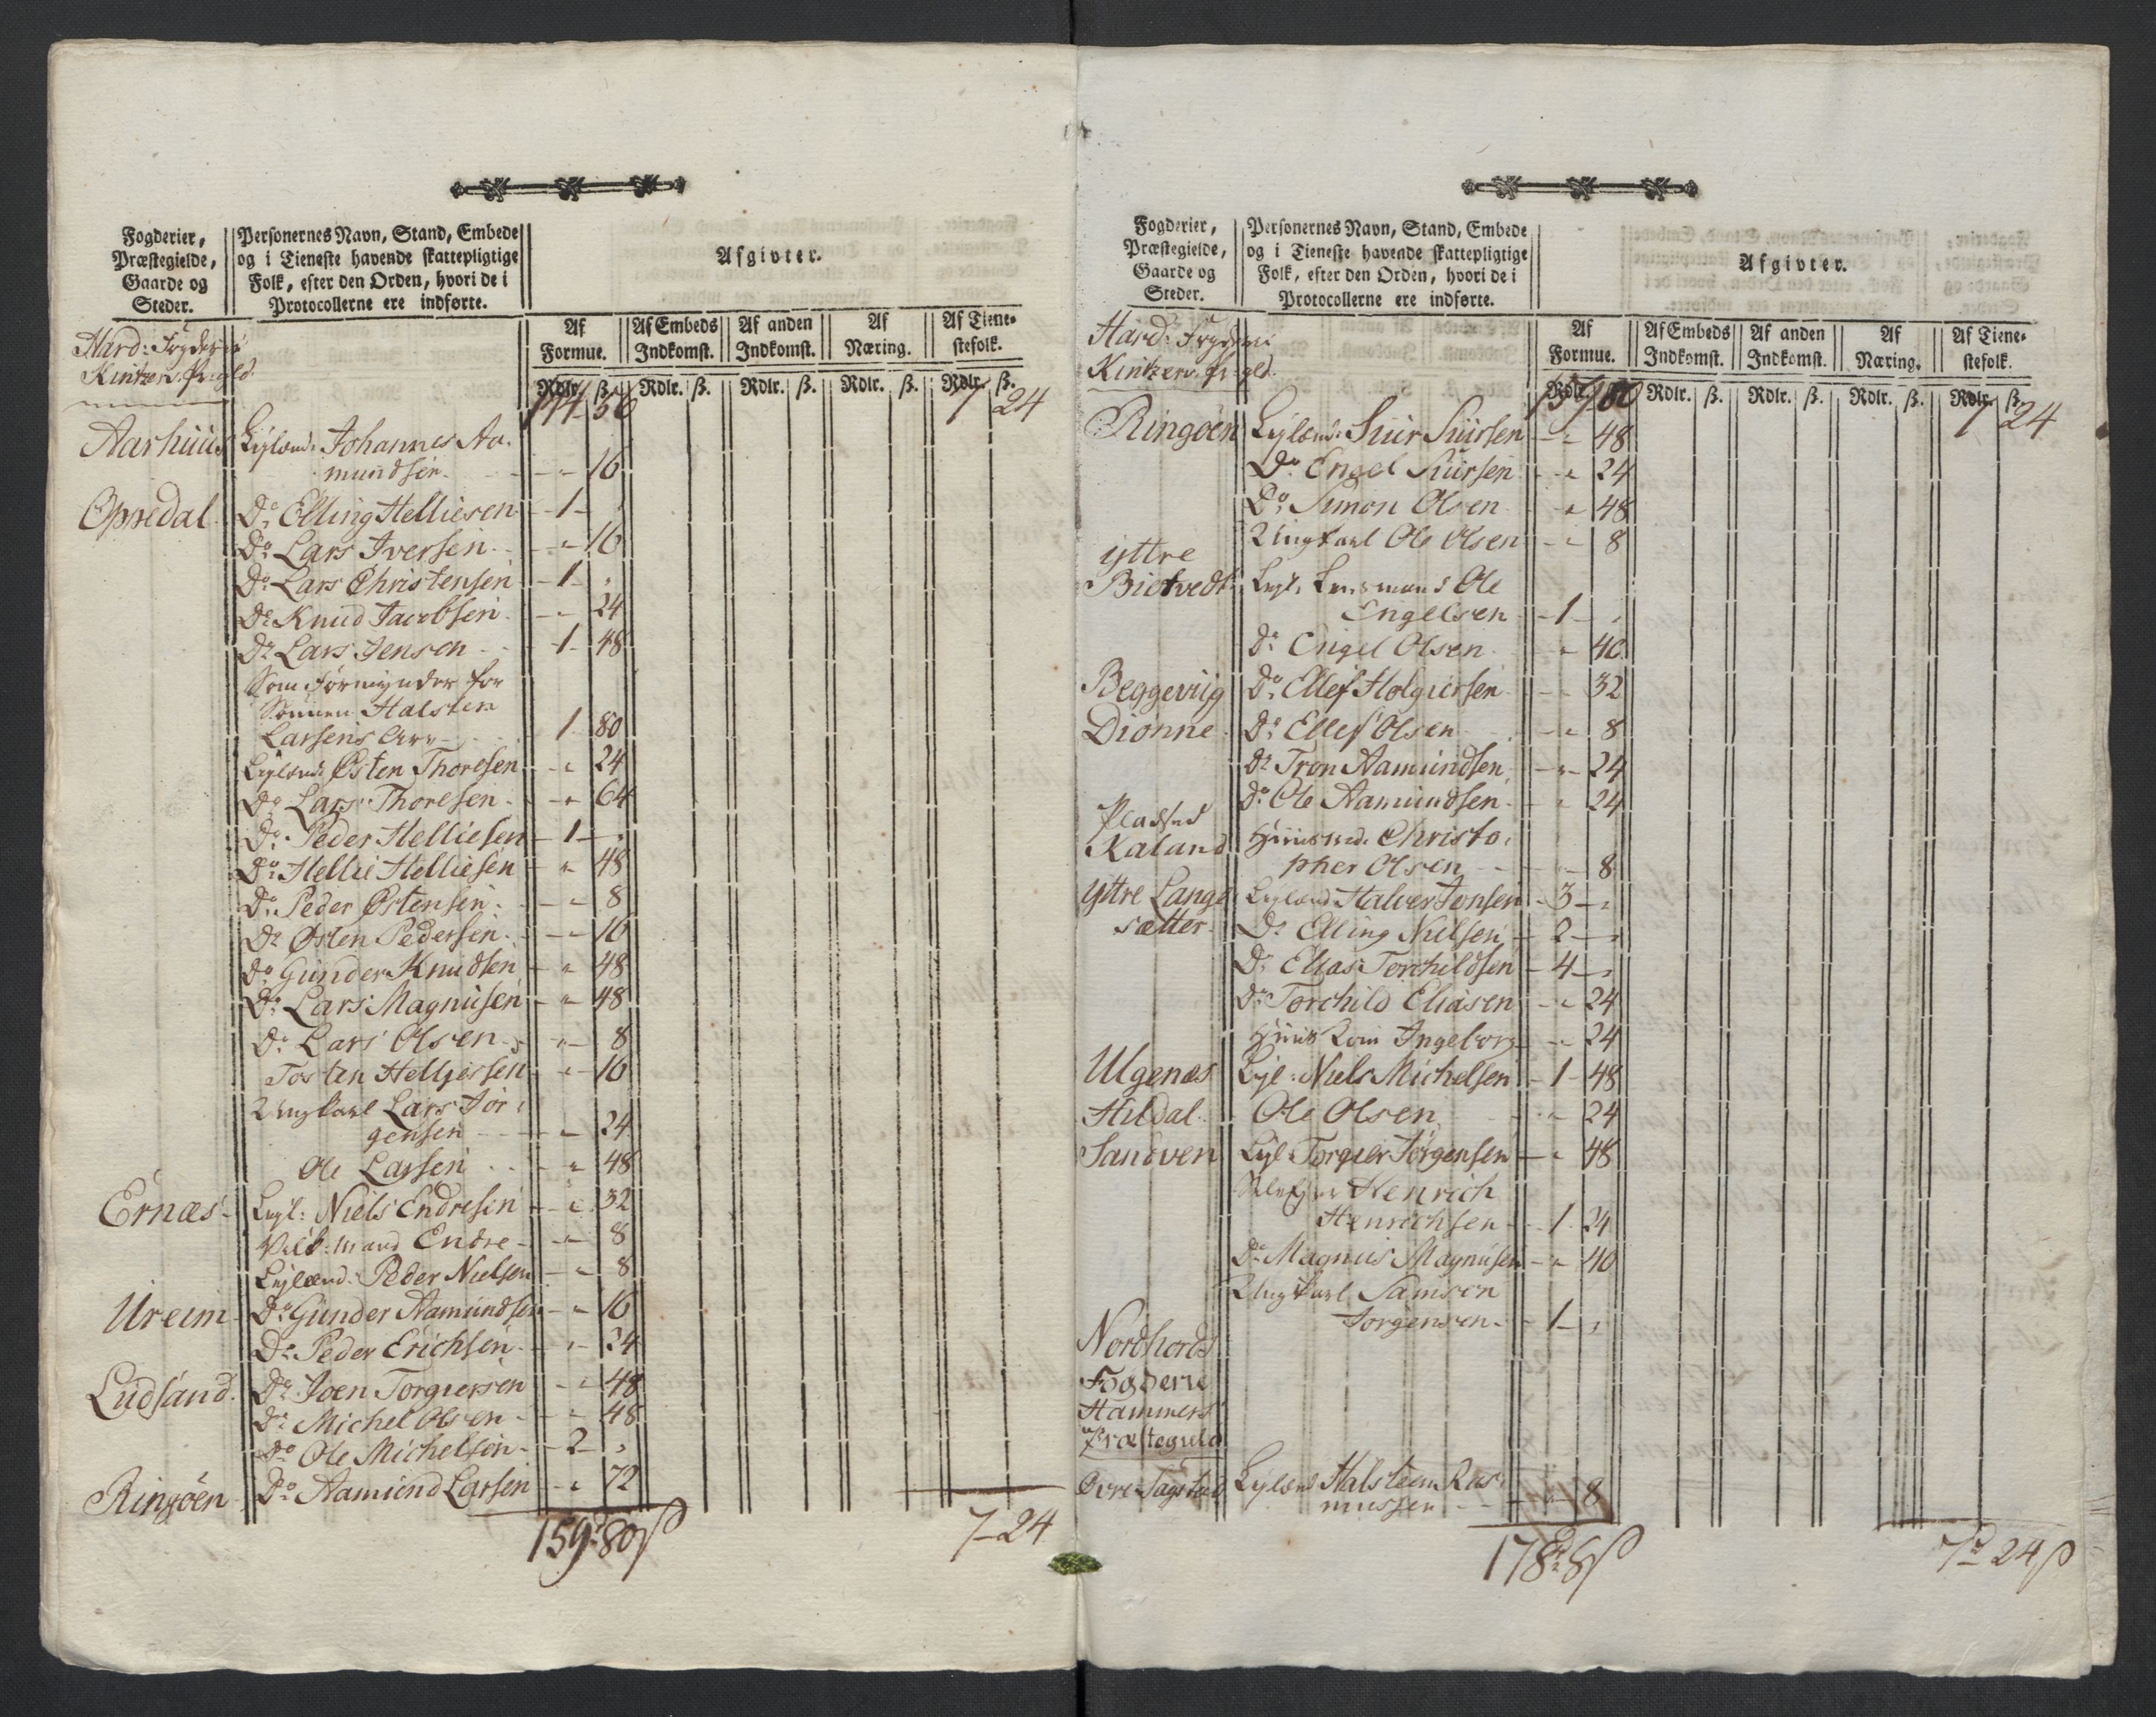 Fogderier,
Præstegielde,
Gaarde og
Steder.
Personernes Navn, Stand, Embede
og i Tieneste havende skattepligtige
Folk, efter den Orden, hvori de i
Protocollerne ere indførte.
Afgivter.
Af
Formue.
Af Embeds
Indkomst.
Af anden
Indkomst.
Af
Næring.
Af Tiene-
stefolk.
Hard: Fogderie
Kintzer. Pr:gld.
Rdlr. ß. Rdlr. ß. Rdlr. ß. Rdlr. ß. Rdlr. ß.
144 56 7 24
Aarhuus Leylænd: Johannes Aa-
mundsen - " 16
Opsedal Do Elling Helliesen - 1 - "
Do Lars Iversen - " 16
Do Lars Christensen - 1 - "
Do Knud Jacobsen - " 24
Do Lars Jensen - 1 - 48
Som Formynder for
Sønnen Halsten
Larsens Arv - 1 80
Leylænd: Østen Thoresen - " 24
Do Lars Thoresen - " 64
Do Peder Helliesen - 1 - "
Do Hellie Helliesen - " 48
Do Peder Østensen - " 8
Do Østen Pedersen - " 16
Do Gunder Knudsen - " 48
Do Lars Magnusen - " 48
Do Lars Olsen - " 8
Tosten Helljessen - " 16
Ungkarl Lars Jør-
gensen - " 24
Ole Larsen - " 48
Ernæs Leyl: Niels Endresen - " 32
Vilk:mand Endre - " 8
Leylænd: Peder Nielsen - " 8
Ureim Do Gunder Aamundsen - " 16
Do Peder Erichsen - " 24
Ludsand Do Joen Torgiersen - " 48
Do Michel Olsen - " 48
Do Ole Michelsen - 2 - "
Ringøen Do Aamund Larsen - " 72
159 - 80 ß 7 - 24
Fogderier,
Præstegielde,
Gaarde og
Steder.
Personernes Navn, Stand, Embede
og i Tieneste havende skattepligtige
Folk, efter den Orden, hvori de i
Protocollerne ere indførte.
Afgivter.
Af
Formue.
Af Embeds
Indkomst.
Af anden
Indkomst.
Af
Næring.
Af Tiene-
stefolk.
Hard: Fogderie
Kintzer. Pr:gld.
Rdlr. ß. Rdlr. ß. Rdlr. ß. Rdlr. ß. Rdlr. ß.
159 80 7 24
Ringøen Leylænd: Siur Siursen - " 48
Do Engel Siursen - " 24
Do Simon Olsen - " 48
Ungkarl Ole Olsen - " 8
yttre
Biotvedt Leyl: Lensmand Ole
Engelsen - 1 - "
Do Engel Olsen - " 40
Beggeviig Do Ellef Holgiersen - " 32
Diønne Do Ellef Olsen - " 8
Do Tron Aamundsen - " 24
Do Ole Aamundsen - " 24
Pladsed
Kaland Huusmd. Christo-
pher Olsen - " 8
yttre Lange
sætter Leylænd: Halver Jonsen - 3 - "
Do Elling Nielsen - 2 - "
Do Elias Torchildsen - 4 - "
Do Torchild Eliasen - " 24
Huus Koni Ingeborg - " 24
Ulgenæs Leyl: Niels Michelsen - 1 - 48
Hildal Ole Olsen - " 24
Sandven Leyl: Torgier Jørgensen - " 48
Henrich
Henrichsen - 1 - 24
Do Magnus Magnusen - " 40
Ungkarl Samson
Jørgensen - 1 - "
Nordhords
Fogderie
Hammers
Præstegield
Øvre Sagstad Leylænd Halsteen Ras-
mussen - " 8
178 - 8 ß 7 - 24 ß